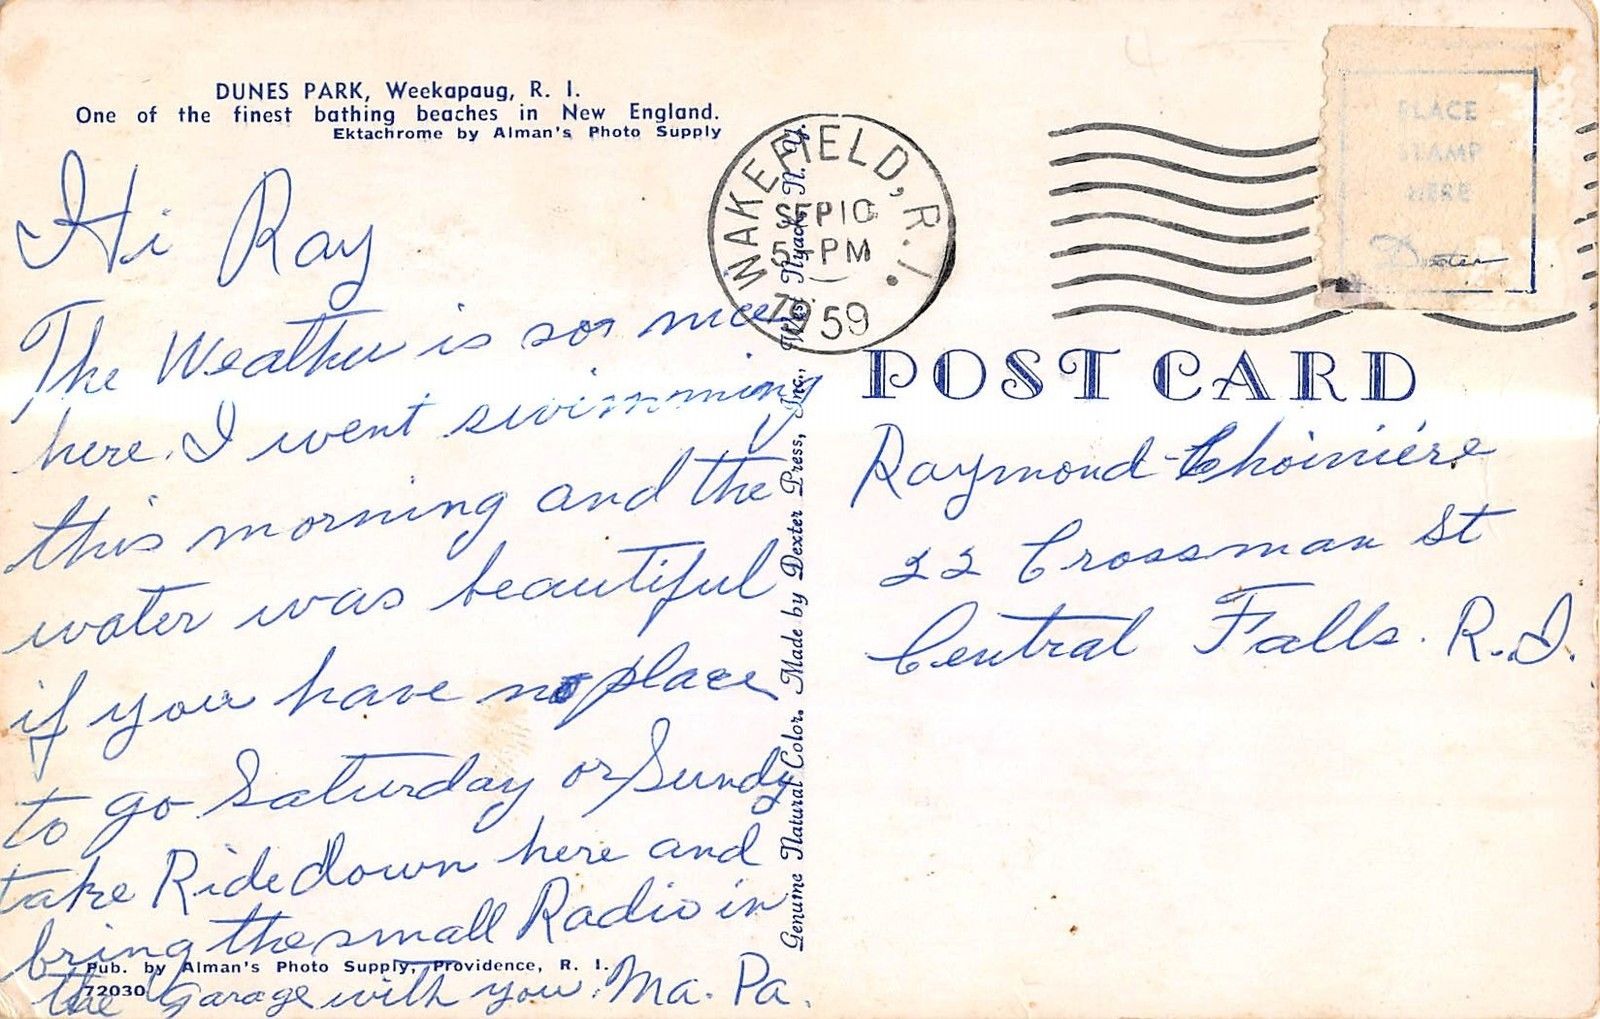 DUNES PARK, Weekapaug, R. I.
One of the finest bathing beaches in New England.
Ektachrome by Alman's Photo Supply
Hi Ray
The Weather is so nice
here. I went swimming
this morning and the
water was beautiful
if you have no place
to go Saturday or Sundy
take Ride down here and
bring the small Radio in
the garage with you. Ma. Pa.
Pub. by Alman's Photo Supply, Providence, R. I.
72030
Genuine Natural Color. Made by Dexter Press, Inc., West Nyack, N. Y.
WAKEFIELD, R. I.
SEP 10
5-PM
1959
PLACE
STAMP
HERE
Dexter
POST CARD
Raymond Choiniére
22 Crossman St
Central Falls. R.I.